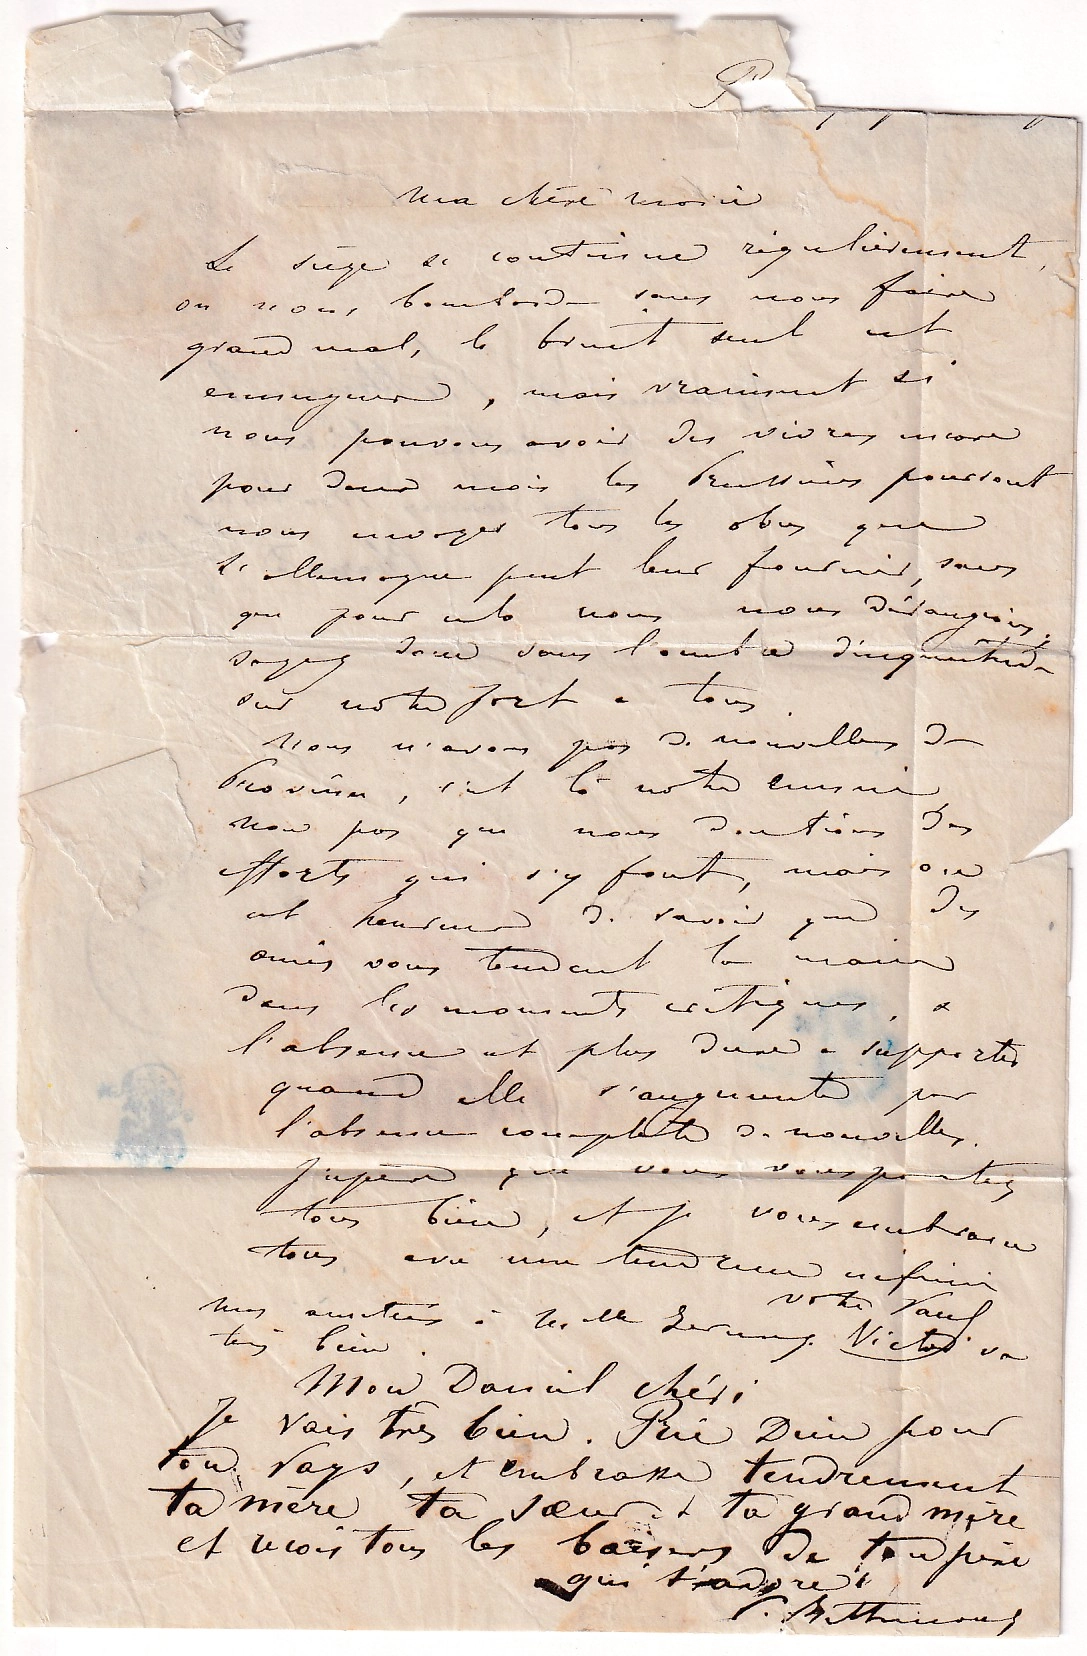 Ma chère Marie
Le siège se continue régulièrement,
on nous bombarde sans nous faire
grand mal, le bruit seul est
ennuyeux, mais vraiment si
nous pouvons avoir des vivres encore
pour deux mois les Prussiens pourront
nous envoyer tous les obus que
l'Allemagne peut leur fournir, sans
que pour cela nous nous dérangions,
soyez donc sans l'ombre d'inquiétude
sur notre sort a tous.
Nous n'avons pas de nouvelles de
Province, c'est là notre ennui
non pas que nous doutions des
efforts qui s'y font, mais on
est heureux de savoir que des
amis vous tendent la main
dans les moments critiques, &
l'absence est plus dure a supporter
quand elle s'augmente par
l'absence complète de nouvelles.
J'espère que vous vous portez
tous bien, et je vous embrasse
tous avec une tendresse infinie
votre Paul
mes amitiés à Melle Victor va
très bien.
Mon Daniel chéri
Je vais très bien. Prie Dieu pour
ton Pays, et embrasse tendrement
ta mère ta sœur & ta grand mère
et reçois tous les baisers de ton père
qui t'adore
P.